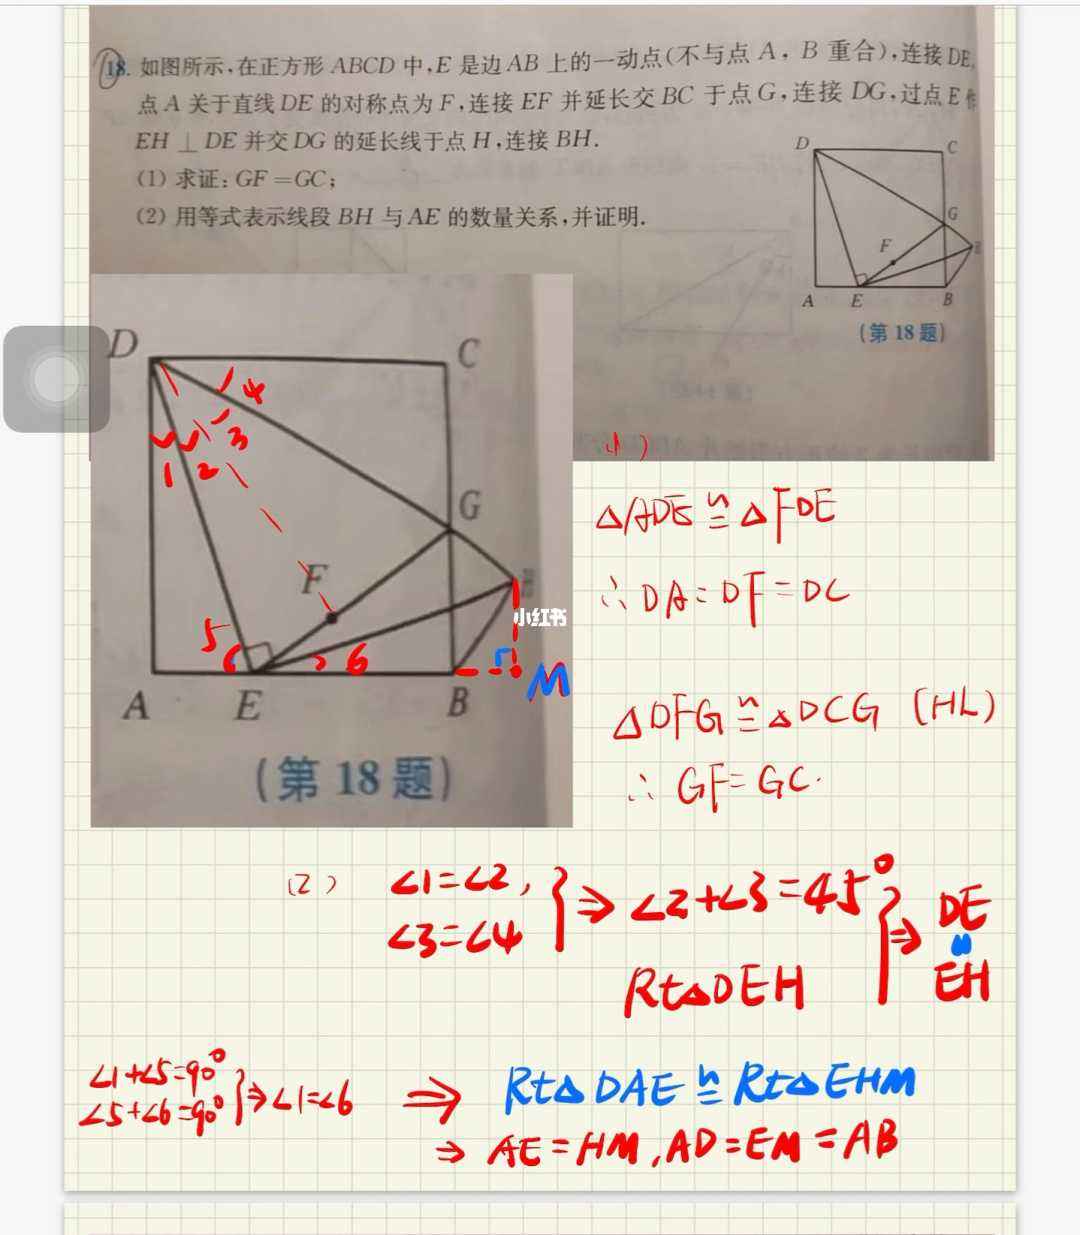 18. 如图所示,在正方形 ABCD 中,E 是边 AB 上的一动点(不与点 A,B 重合),连接 DE,
点 A 关于直线 DE 的对称点为 F,连接 EF 并延长交 BC 于点 G,连接 DG,过点 E 作
EH ⊥ DE 并交 DG 的延长线于点 H,连接 BH.
(1) 求证:GF=GC;
(2) 用等式表示线段 BH 与 AE 的数量关系,并证明.
D C
G
F
A E B
(第 18 题)
D C
4
3
1 2
G
F
小红书
5 6
M
A E B
(第 18 题)
(1)
△ADE≌△FDE
∴DA=DF=DC
△DFG≌△DCG (HL)
∴GF=GC.
(2) ∠1=∠2,
∠3=∠4
} ⇒ ∠2+∠3=45°
Rt△DEH
} ⇒ DE
=
EH
∠1+∠5=90°
∠5+∠6=90°
} ⇒ ∠1=∠6
⇒ Rt△DAE≌Rt△EHM
⇒ AE=HM,AD=EM=AB